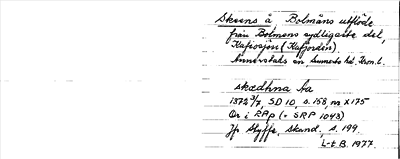 Skeens å Bolmåns utflöde
från Bolmens sydligaste del,
Kafjosjön (Kafjorden).
Annerstads sn Sunnerbo hd. Kron. l.
skædhna aa
1372 3/7, SD 10, s. 158, nr X 175
Or i RPp (= SRP 1043)
Jfr Styffe, Skand., s. 199.
L-t B. 1977.